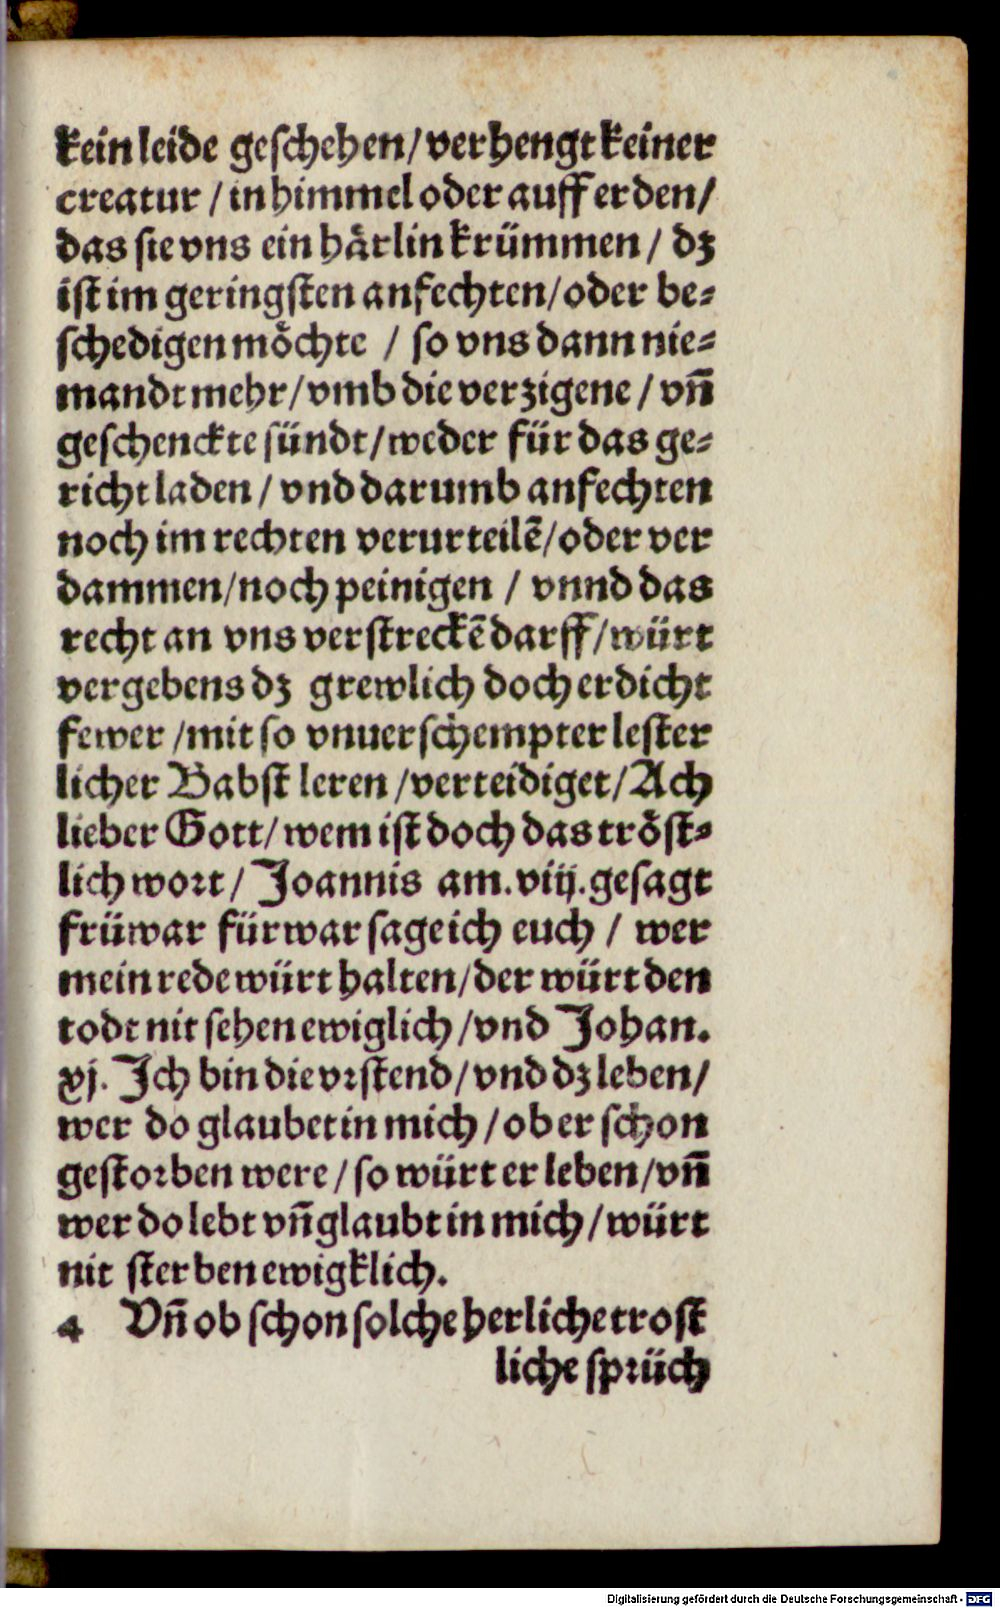 kein leide geschehen/verhengt keiner
creatur / in himmel oder auff erden/
das sie vns ein haͤrlin krümmen / dz
ist im geringsten anfechten/oder be⸗
schedigen moͤchte / so vns dann nie⸗
mandt mehr/vmb die verzigene / vn̄
geschenckte sündt/weder für das ge⸗
richt laden / vnd darumb anfechten
noch im rechten verurteilē/oder ver
dammen/noch peinigen / vnnd das
recht an vns verstreckē darff/würt
vergebens dz grewlich doch erdicht
fewer /mit so vnuerschempter lester
licher Babst leren /verteidiget/Ach
lieber Gott/ wem ist doch das troͤst⸗
lich wort/ Joannis am.viij.gesagt
früwar fürwar sage ich euch / wer
mein rede würt halten/der würt den
todt nit sehen ewiglich /vnd Johan.
xj. Ich bin die vrstend/vnd dz leben/
wer do glaubet in mich /ob er schon
gestorben were/so würt er leben/vn̄
wer do lebt vn̄ glaubt in mich/würt
nit sterben ewigklich.
4 Vn̄ ob schon solche herliche trost
liche sprüch
Digitalisierung gefördert durch die Deutsche Forschungsgemeinschaft - DFG